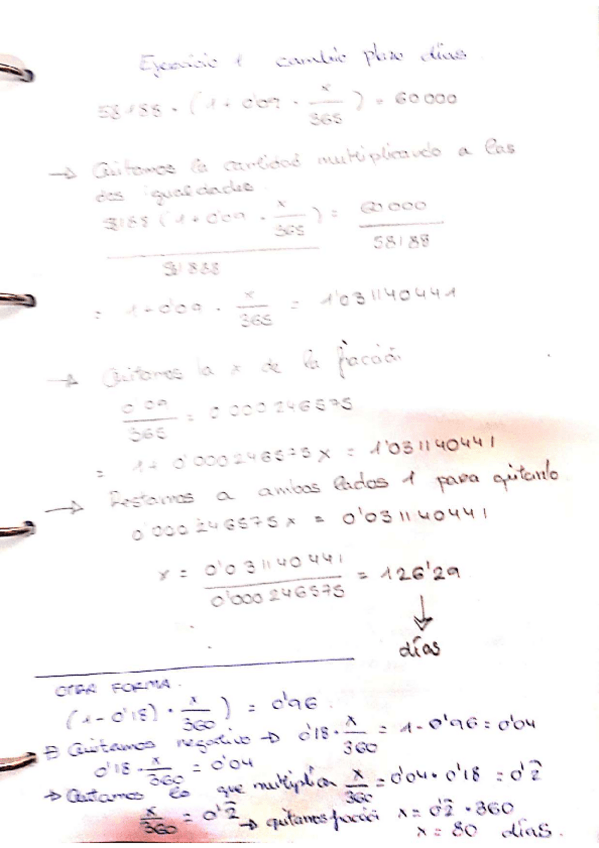 Ejercicio 1 cambio plazo días
58188 · (1 + 0'09 · x/365) = 60000
→ Quitamos la cantidad multiplicando a las
dos igualdades.
58188 (1 + 0'09 · x/365) = 60000
58188
58188
= 1 + 0'09 · x/365 = 1'031140441
→ Quitamos la x de la fracción
0'09/365 = 0'000246575
= 1 + 0'000246575 x = 1'031140441
→ Restamos a ambos lados 1 para quitarlo
0'000246575 x = 0'031140441
x = 0'031140441/0'000246575 = 126'29
↓
días
OTRA FORMA.
(1 - 0'18) · x/360) = 0'96
⇒ Quitamos negativo → 0'18 · x/360 = 1 - 0'96 = 0'04
0'18 · x/360 = 0'04
→ Quitamos lo que multiplica x/360 = 0'04 · 0'18 = 0'2̂
x/360 = 0'2̂ → quitamos fracción x = 0'2̂ · 360
x = 80 días.